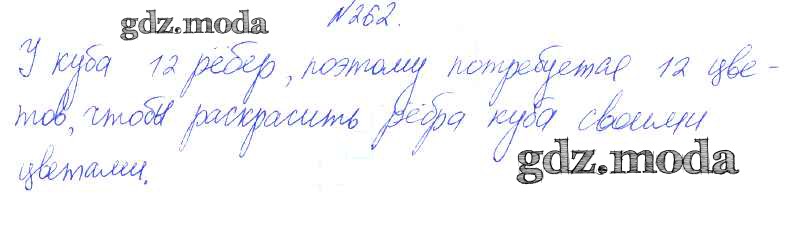 №262.
gdz.moda
У куба 12 рёбер, поэтому потребуется 12 цве-
тов, чтобы раскрасить рёбра куба своими
цветами.
gdz.moda